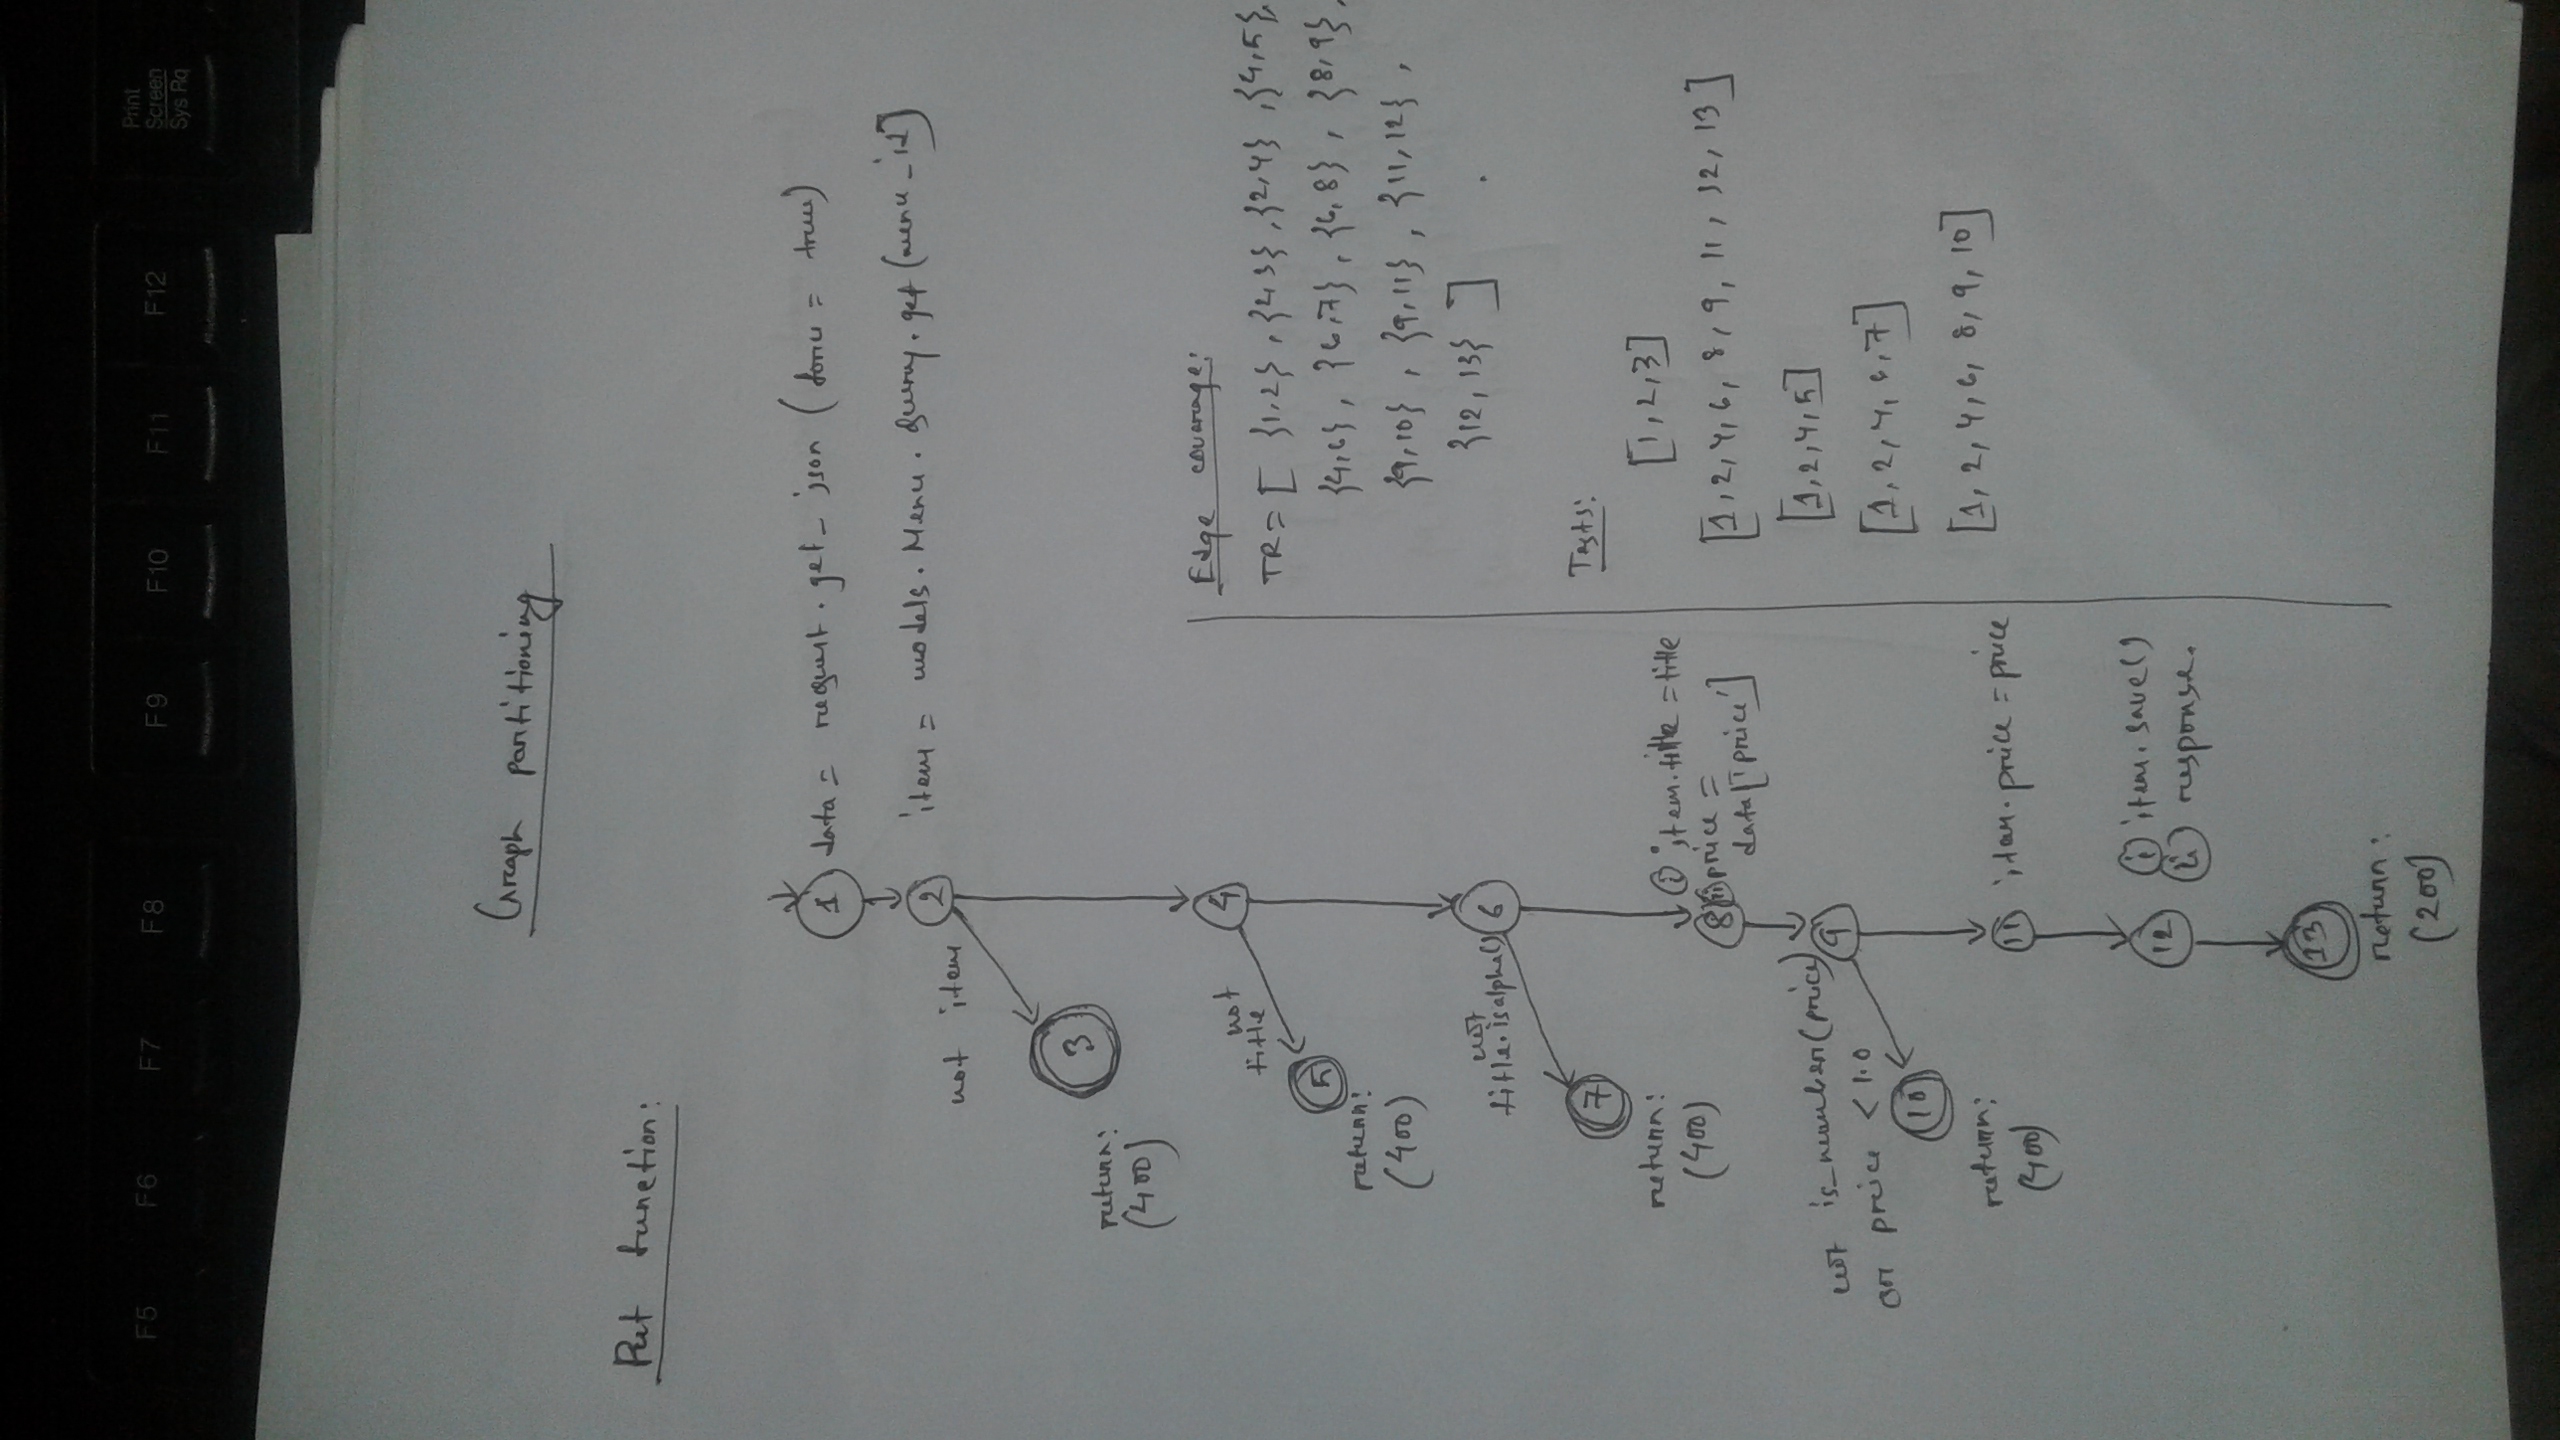 F5 F6 F7 F8 F9 F10 F11 F12 Print
Screen
Sys Rq
Graph partitioning
Put function:
1 data = request.get_json (force = true)
2 item = models.Menu.query.get(menu_id)
not item
3
return:
(400)
4
not
title
5
return:
(400)
6
not
title.isalpha()
7
return:
(400)
i item.title = title
8 ii price =
data['price']
9
not is_number(price)
or price < 1.0
10
return:
(400)
11 item.price = price
12 i item.save()
ii response.
13
return:
(200)
Edge coverage:
TR = [ {1,2}, {2,3}, {2,4}, {4,5},
{4,6}, {6,7}, {6,8}, {8,9},
{9,10}, {9,11}, {11,12},
{12,13} ]
Tests:
[1,2,3]
[1,2,4,6,8,9,11,12,13]
[1,2,4,5]
[1,2,4,6,7]
[1,2,4,6,8,9,10]